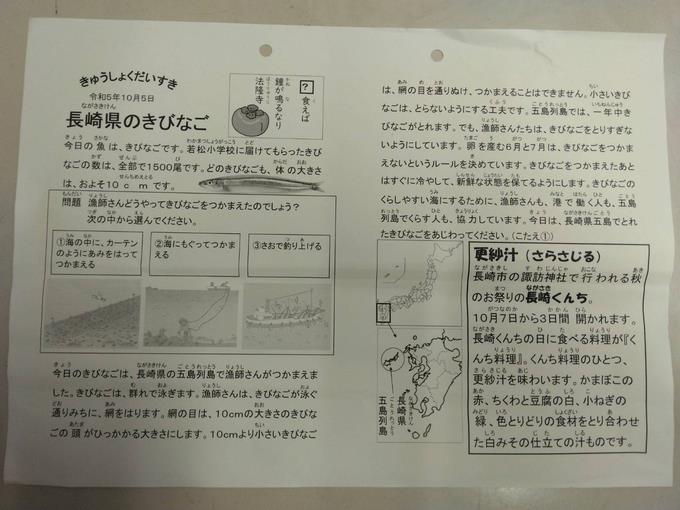 きゅうしょくだいすき
令和5年10月5日
長崎県のきびなご
? 食えば
鐘が鳴るなり
法隆寺
今日の魚は、きびなごです。若松小学校に届けてもらったきび
なごの数は、全部で1500尾です。どのきびなごも、体の大きさ
は、およそ10cmです。
問題 漁師さんどうやってきびなごをつかまえたのでしょう?
次の中から選んでください。
①海の中に、カーテン
のようにあみをはって
つかまえる
②海にもぐってつかま
える
③さおで釣り上げる
今日のきびなごは、長崎県の五島列島で漁師さんがつかまえま
した。きびなごは、群れで泳ぎます。漁師さんは、きびなごが泳ぐ
通りみちに、網をはります。網の目は、10cmの大きさのきびな
ごの頭がひっかかる大きさにします。10cmより小さいきびなご
は、網の目を通りぬけ、つかまえることはできません。小さいきび
なごは、とらないようにする工夫です。五島列島では、一年中き
びなごがとれます。でも、漁師さんたちは、きびなごをとりすぎな
いようにしています。卵を産む6月と7月は、きびなごをつかま
えないというルールを決めています。きびなごをつかまえたあと
はすぐに冷やして、新鮮な状態を保てるようにします。きびなごの
くらしやすい海にするために、漁師さんも、港で働く人も、五島
列島でくらす人も、協力しています。今日は、長崎県五島でとれ
たきびなごをあじわってください。(こたえ①)
長崎県
五島列島
更紗汁(さらさじる)
長崎市の諏訪神社で行われる秋
のお祭りの長崎くんち。
10月7日から3日間 開かれます。
長崎くんちの日に食べる料理が『く
んち料理』。くんち料理のひとつ、
更紗汁を味わいます。かまぼこの
赤、ちくわと豆腐の白、小ねぎの
緑、色とりどりの食材をとり合わせ
た白みその仕立ての汁ものです。